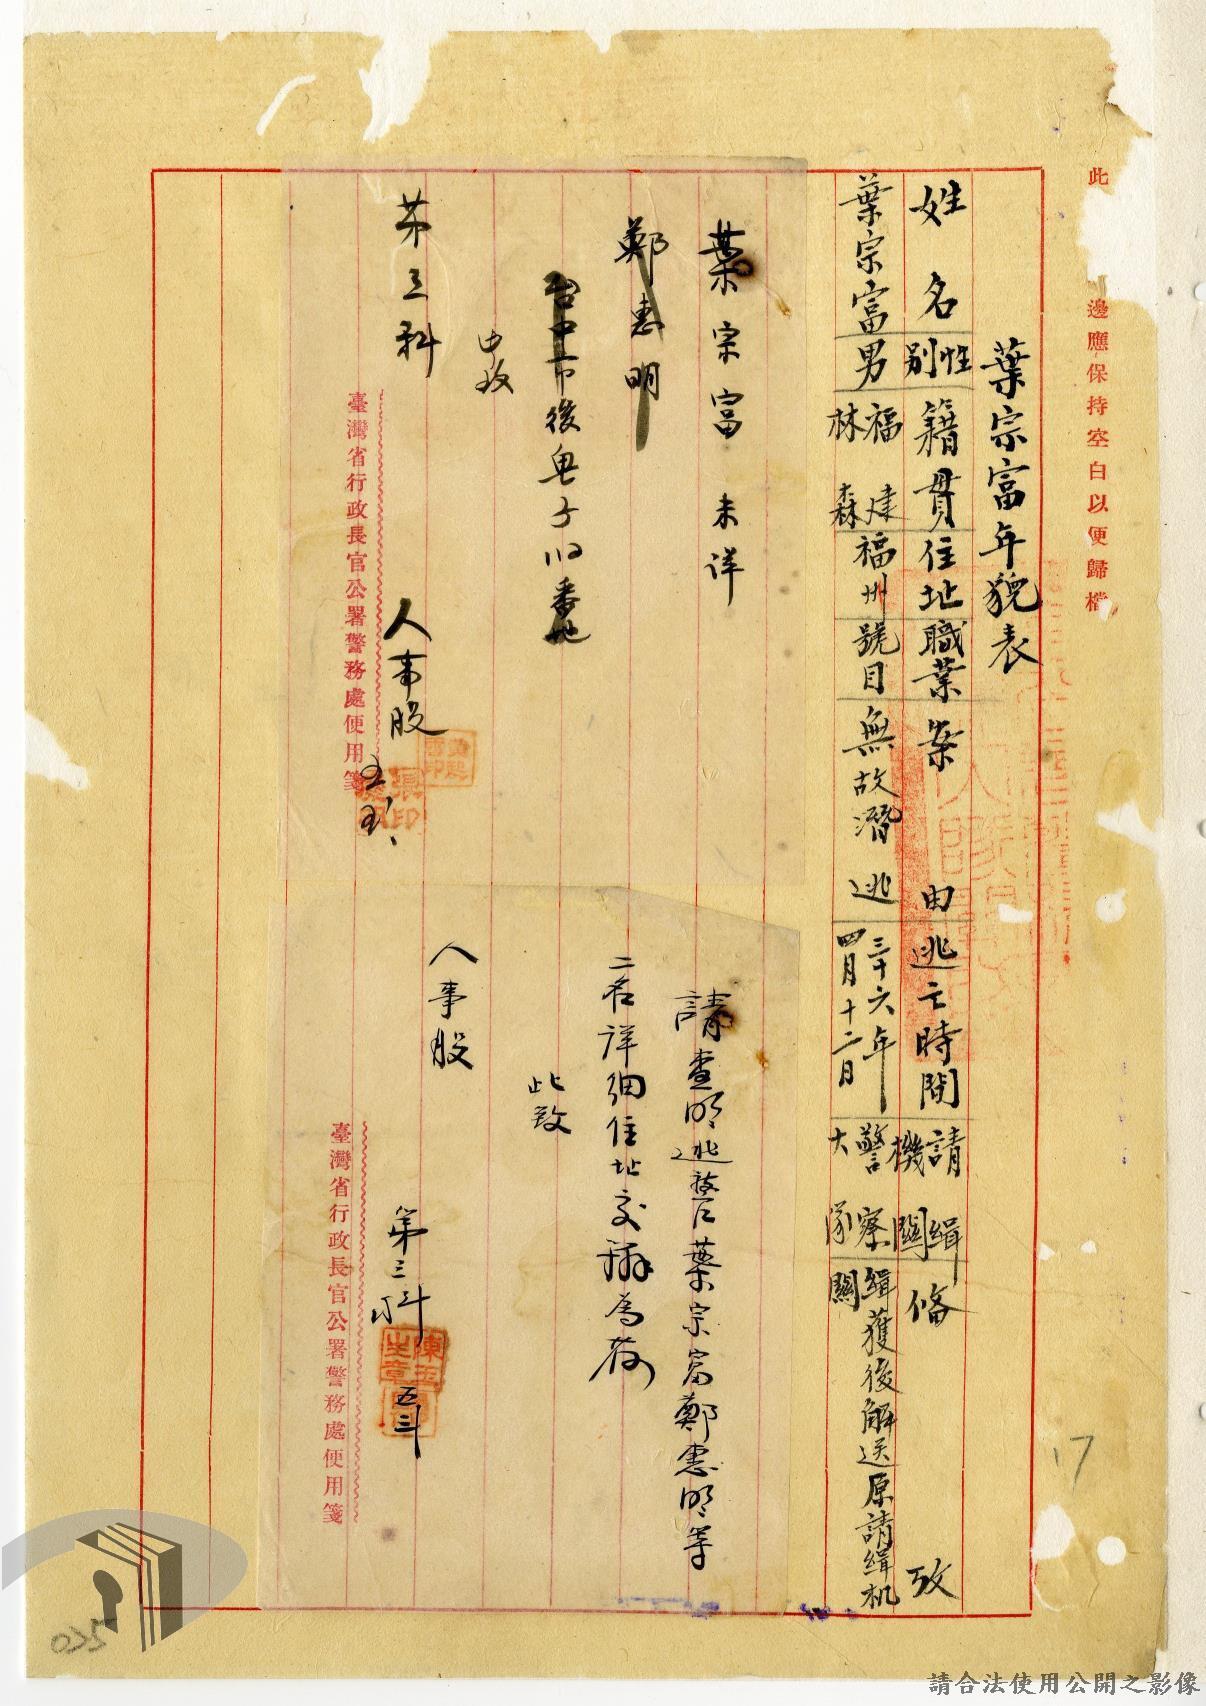 此邊應保持空白以便歸檔
葉宗富年貌表
姓名 性別 籍貫 住址 職業 案由 逃亡時間 請緝機關 俻攷
葉宗富 男 福建林森 福州 號目 無故潛逃 三十六年四月十二日 警察大隊 緝獲後解送原請緝机關
葉宗富 未详
鄭惠明
台中市後龜子 番地
中政
第三科
人事股
臺灣省行政長官公署警務處便用箋
請查明逃警葉宗富鄭惠明等
二名詳细住址交辦為荷
此致
人事股
第三科
五三
臺灣省行政長官公署警務處便用箋
17
035
請合法使用公開之影像